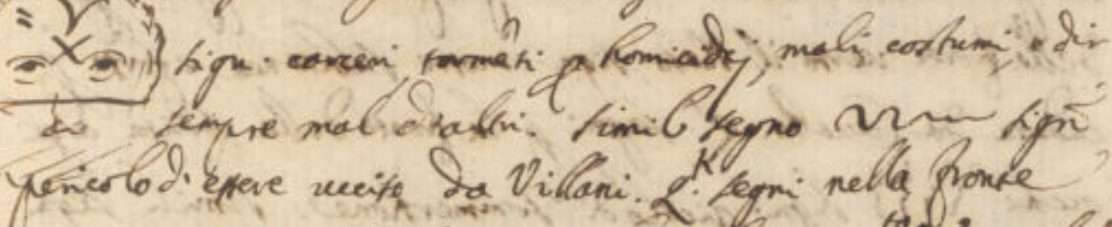 sign. carceri tormẽti p homicidij, mali costumi, e dir
sempre mal d'altri. simil segno sign̄
pericolo d'essere ucciso da Villani. segni nella fronte